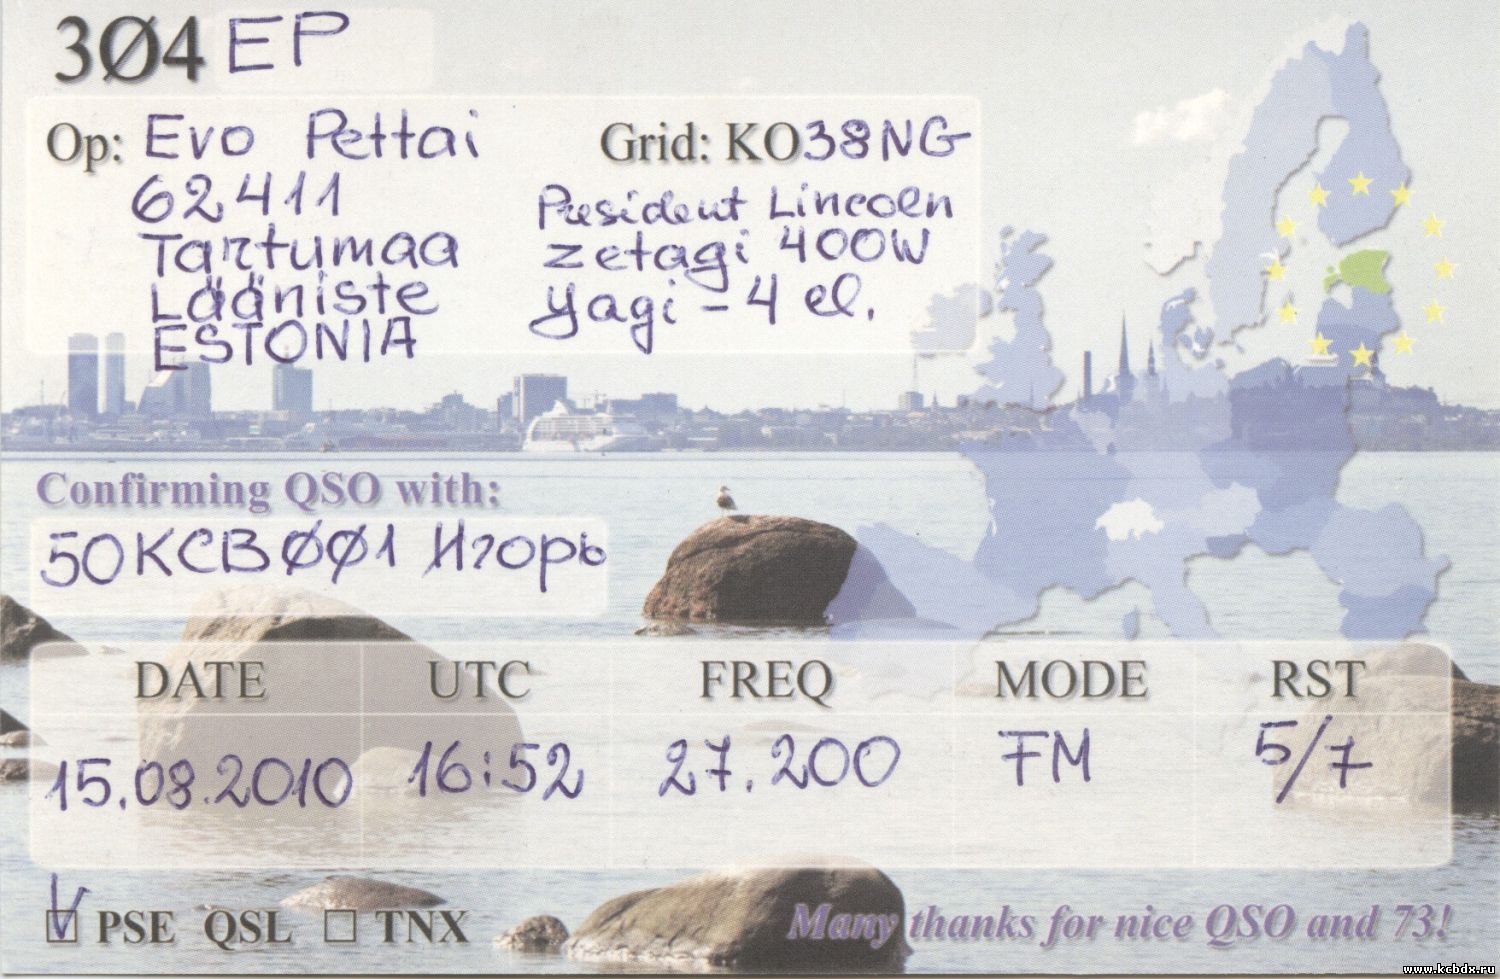 3Ø4 EP
Op: Evo Pettai
62411
Tartumaa
Lääniste
ESTONIA
Grid: KO38NG
President Lincoln
Zetagi 400W
Yagi - 4 el.
Confirming QSO with:
50KCBØØ1 Игорь
DATE UTC FREQ MODE RST
15.08.2010 16:52 27.200 FM 5/7
V PSE QSL TNX
Many thanks for nice QSO and 73!
www.kcbdx.ru